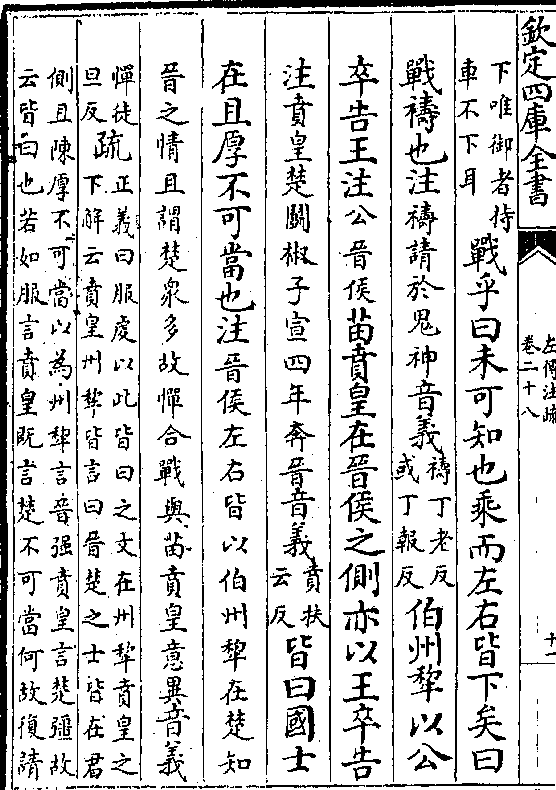 欽定四庫全書
左傳注疏
卷二十八
十一
下唯御者侍
車不下耳
戰乎曰未可知也乘而左右皆下矣曰
戰禱也注禱請於鬼神音義
禱丁老反
或丁報反
伯州犂以公
卒告王注公晉侯苗賁皇在晉侯之側亦以王卒告
注賁皇楚鬬椒子宣四年奔晉音義
賁扶
云反
皆曰國士
在且厚不可當也注晉侯左右皆以伯州犂在楚知
晉之情且謂楚衆多故憚合戰與苗賁皇意異音義
憚徒
旦反
疏
正義曰服虔以此皆曰之文在州犂賁皇之
下解云賁皇州犂皆言曰晉楚之士皆在君
側且陳厚不可當以為州犂言晉强賁皇言楚彊故
云皆曰也若如服言賁皇既言楚不可當何故復請